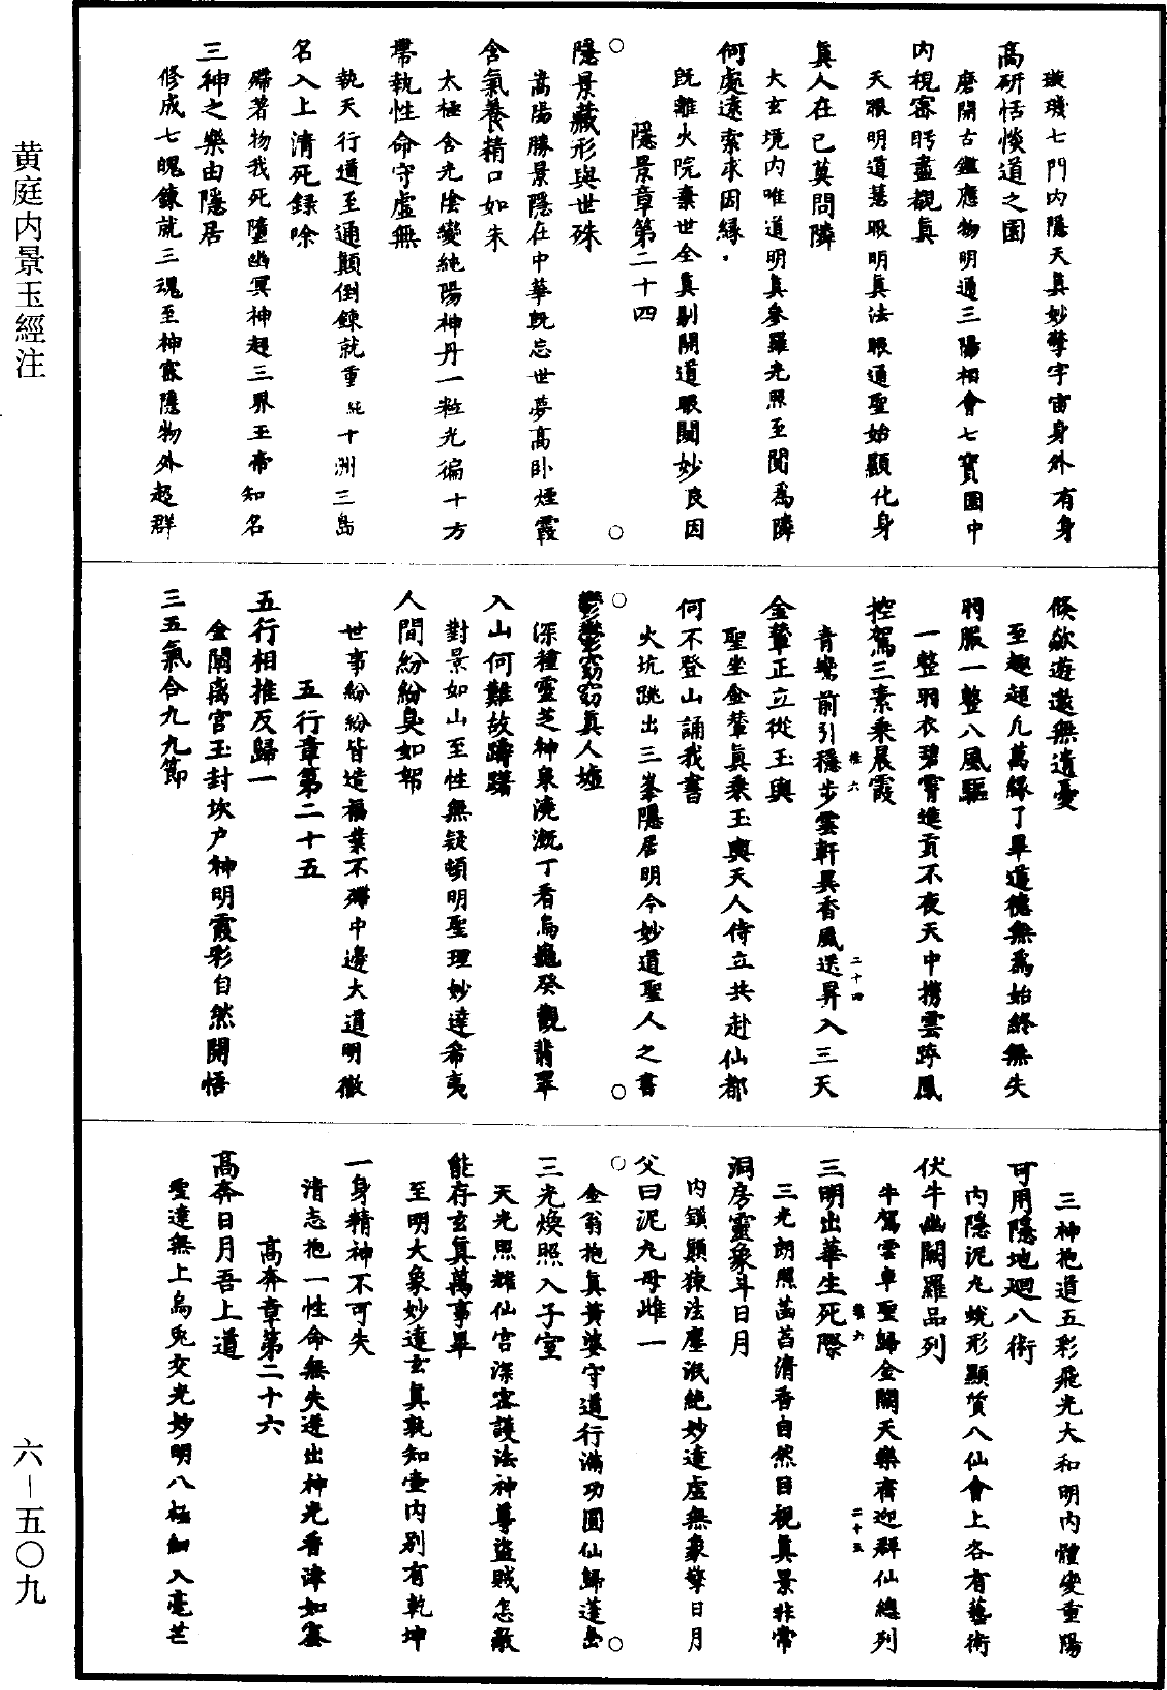 黄庭内景玉經注
六-五〇九
璇璣七門内隱天眞妙擎宇宙身外有身
高研恬惔道之園
磨開古鑑應物明通三陽相會七寳園中
内視密眄盡覩眞
天眼明道慧眼明眞法眼通聖始顯化身
眞人在已莫問隣
大玄境内唯道明眞參羅光照至聞爲隣
何處遠索求因縁
旣離火院棄世全眞剔開道眼闡妙良因
隱景章第二十四
隱景藏形與世殊
嵩陽勝景隱在中華旣忘世夢高卧煙霞
含氣養精口如朱
太極含光陰變純陽神丹一粒光徧十方
帶執性命守虛無
執天行道至通顛倒鍊就重純十洲三島
名入上清死録除
殢著物我死墮幽冥神超三界玉帝知名
三神之樂由隱居
修成七魄鍊就三魂至神寂隱物外超群
倏歘遊遨無遺憂
至趣超凡萬縁了畢道德無爲始終無失
羽服一整八風驅
一整羽衣碧霄進貢不夜天中携雲跨鳳
控駕三素乘晨霞
青鸞前引穩步雲軒異香風送昇入三天
金輦正立從玉輿
聖坐金輦眞乘玉輿天人侍立共赴仙都
何不登山誦我書
火坑跳出三峯隱居明今妙道聖人之書
鬱鬱窈窈眞人墟
深種靈芝神泉澆漑丁看烏龜癸觀翡翠
入山何難故躊躇
對景如山至性無疑頓明聖理妙達希夷
人間紛紛臭如帤
世事紛紛皆造福業不殢中邊大道明徹
五行章第二十五
五行相推反歸一
金關离宮玉封坎户神明霞彩自然開悟
三五氣合九九節
三神抱道五彩飛光大和明内體變重陽
可用隱地迴八術
内隱泥丸蛻形顯質八仙會上各有藝術
伏牛幽闕羅品列
牛駕雲車聖歸金闕天樂齊迎群仙總列
三明出華生死際
三光朗照菡萏清香自然目視眞景非常
洞房靈象斗日月
内鎖顛猿法塵泯絶妙達虛無象擎日月
父曰泥丸母雌一
金翁抱眞黄婆守道行滿功圓仙歸蓬島
三光煥照入子室
天光照耀仙宮深密護法神尊盜賊怎敵
能存玄眞萬事畢
至明大象妙達玄眞孰知壺内别有乾坤
一身精神不可失
清志抱一性命無失迸出神光香津如蜜
高奔章第二十六
高奔日月吾上道
聖達無上烏兎交光妙明八極細入毫芒